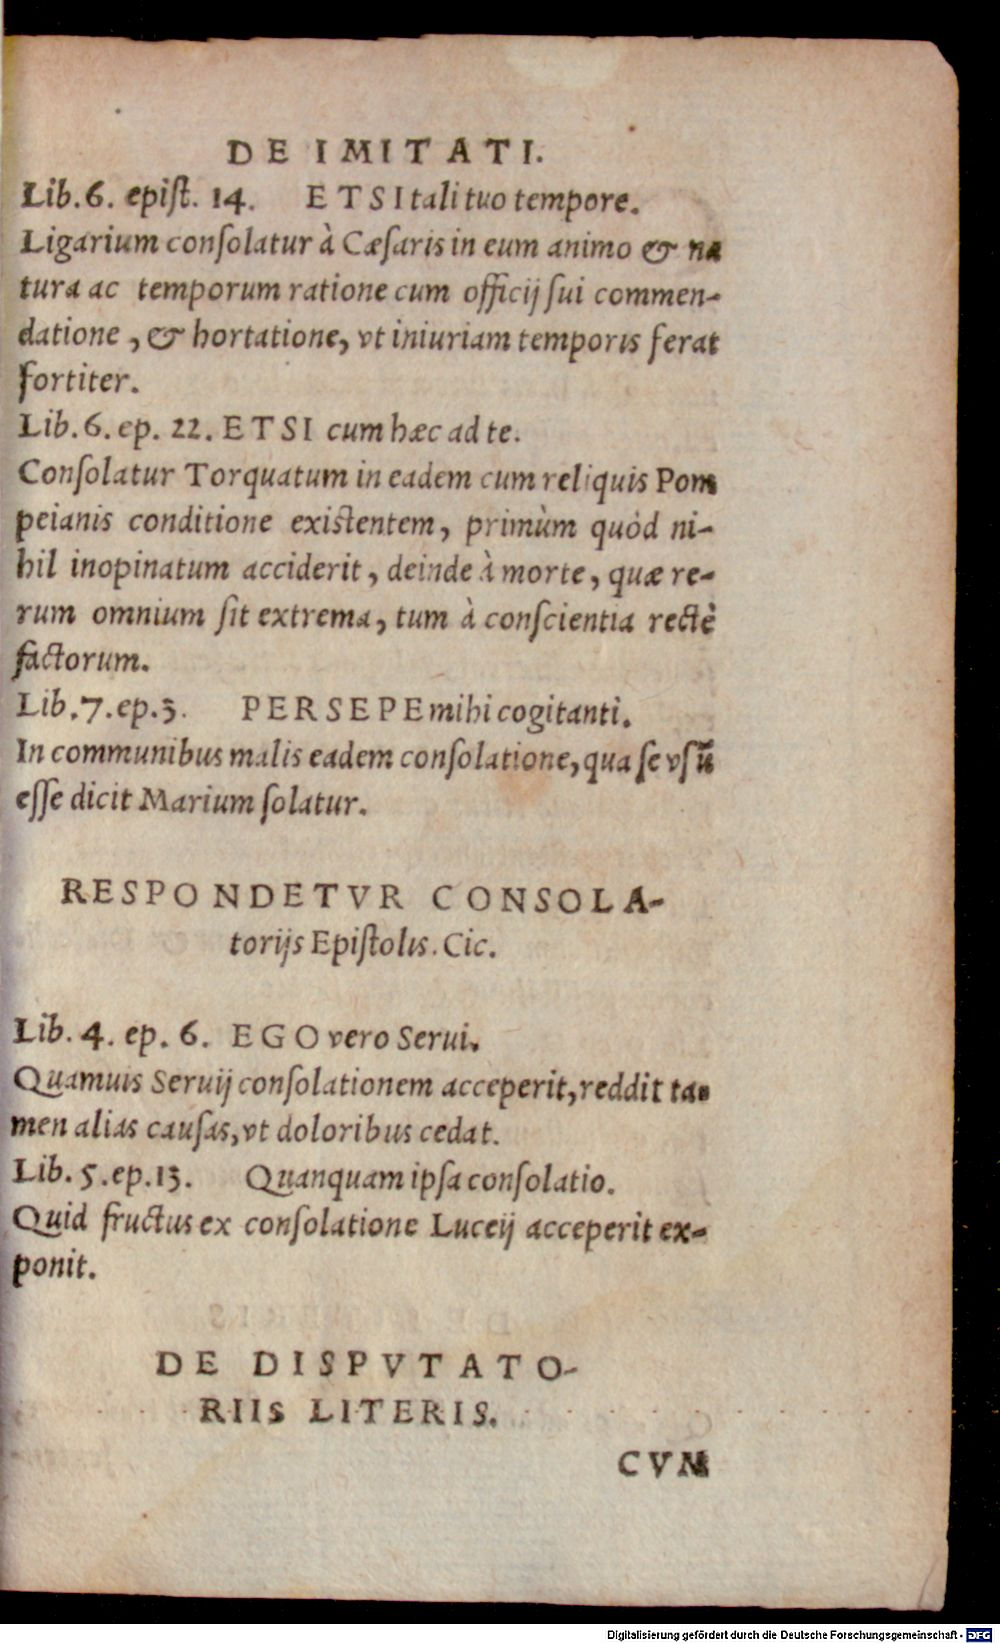 DE IMITATI.
Lib. 6. epiſt. 14. ETSI tali tuo tempore.
Ligarium conſolatur à Cæſaris in eum animo & na
tura ac temporum ratione cum officij ſui commen-
datione, & hortatione, vt iniuriam temporis ferat
fortiter.
Lib. 6. ep. 22. ETSI cum hæc ad te.
Conſolatur Torquatum in eadem cum reliquis Pom
peianis conditione existentem, primùm quòd ni-
hil inopinatum acciderit, deinde à morte, quæ re-
rum omnium ſit extrema, tum à conſcientia rectè
factorum.
Lib. 7. ep. 3. PERSEPE mihi cogitanti.
In communibus malis eadem conſolatione, qua ſe vſũ
eſſe dicit Marium ſolatur.
RESPONDETVR CONSOLA-
torijs Epiſtolis. Cic.
Lib. 4. ep. 6. EGO vero Serui.
Quamuis Seruij conſolationem acceperit, reddit ta-
men alias cauſas, vt doloribus cedat.
Lib. 5. ep. 13. Quanquam ipſa conſolatio.
Quid fructus ex conſolatione Luceij acceperit ex-
ponit.
DE DISPVTATO-
RIIS LITERIS.
CVM
Digitalisierung gefördert durch die Deutsche Forschungsgemeinschaft - DFG